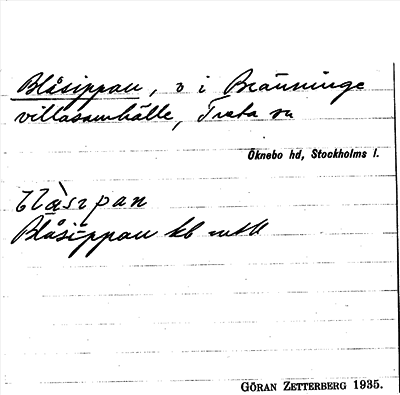 Blåsippan, v i Bränninge
villasamhälle, Treta sn
Öknebo hd, Stockholms l.
blåsıpan
Blåsippan kb mtl
GÖRAN ZETTERBERG 1935.